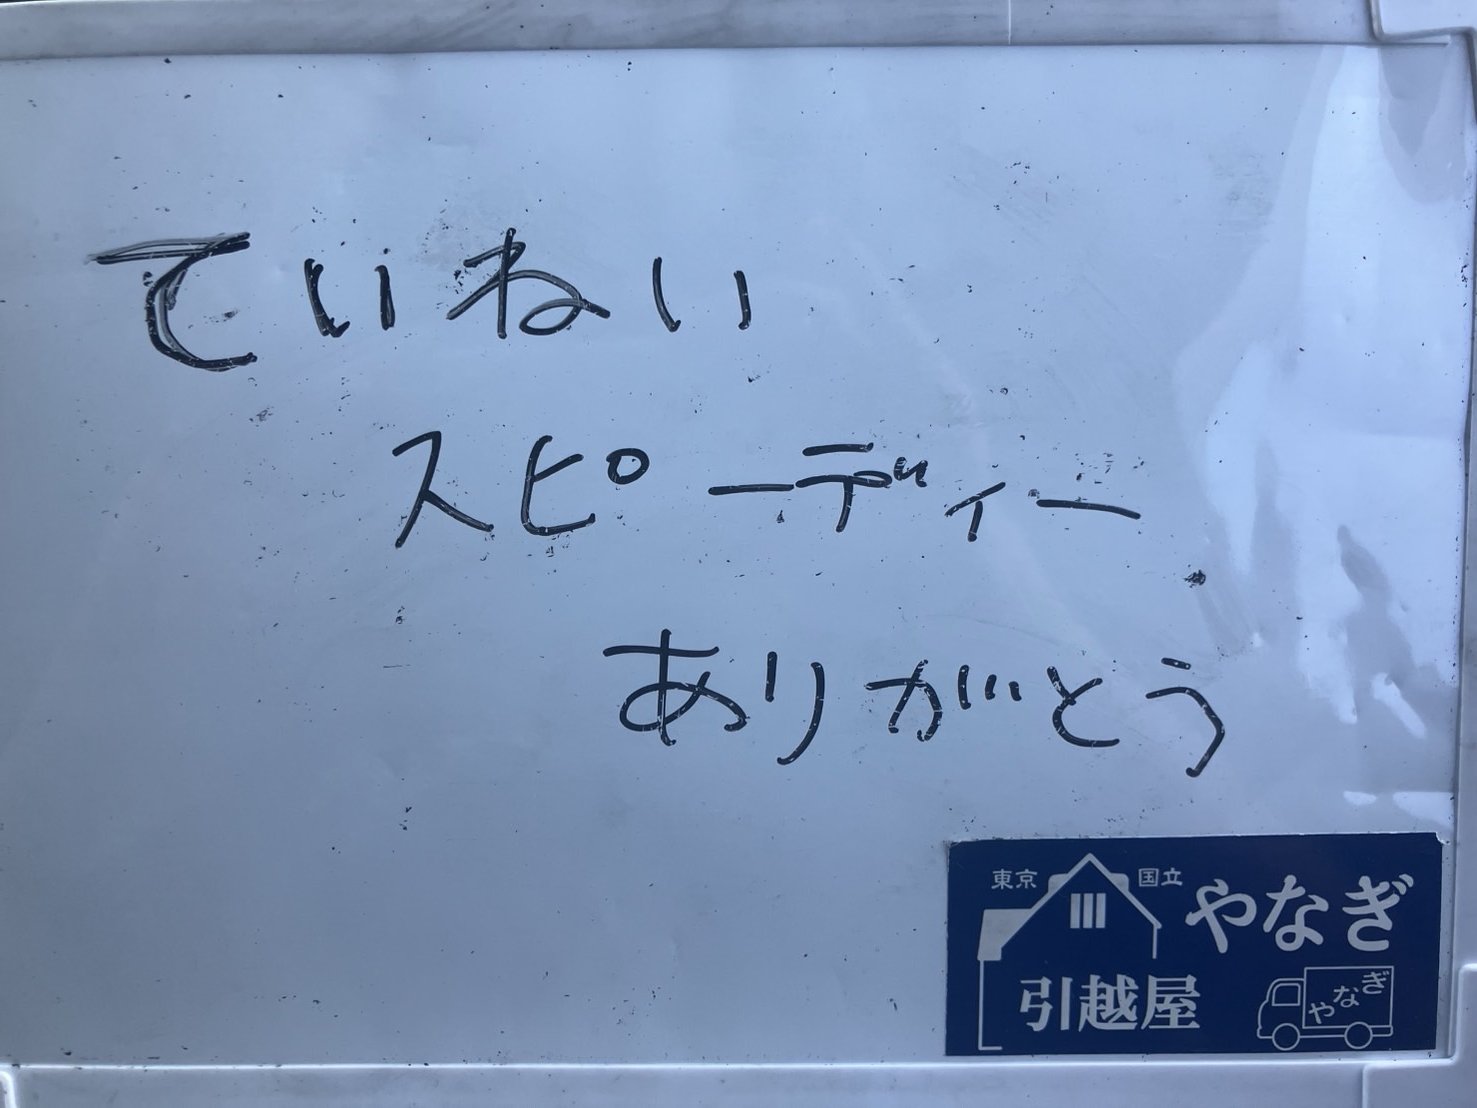 ていねい
スピーディー
ありがとう
東京 国立 やなぎ
引越屋
やなぎ